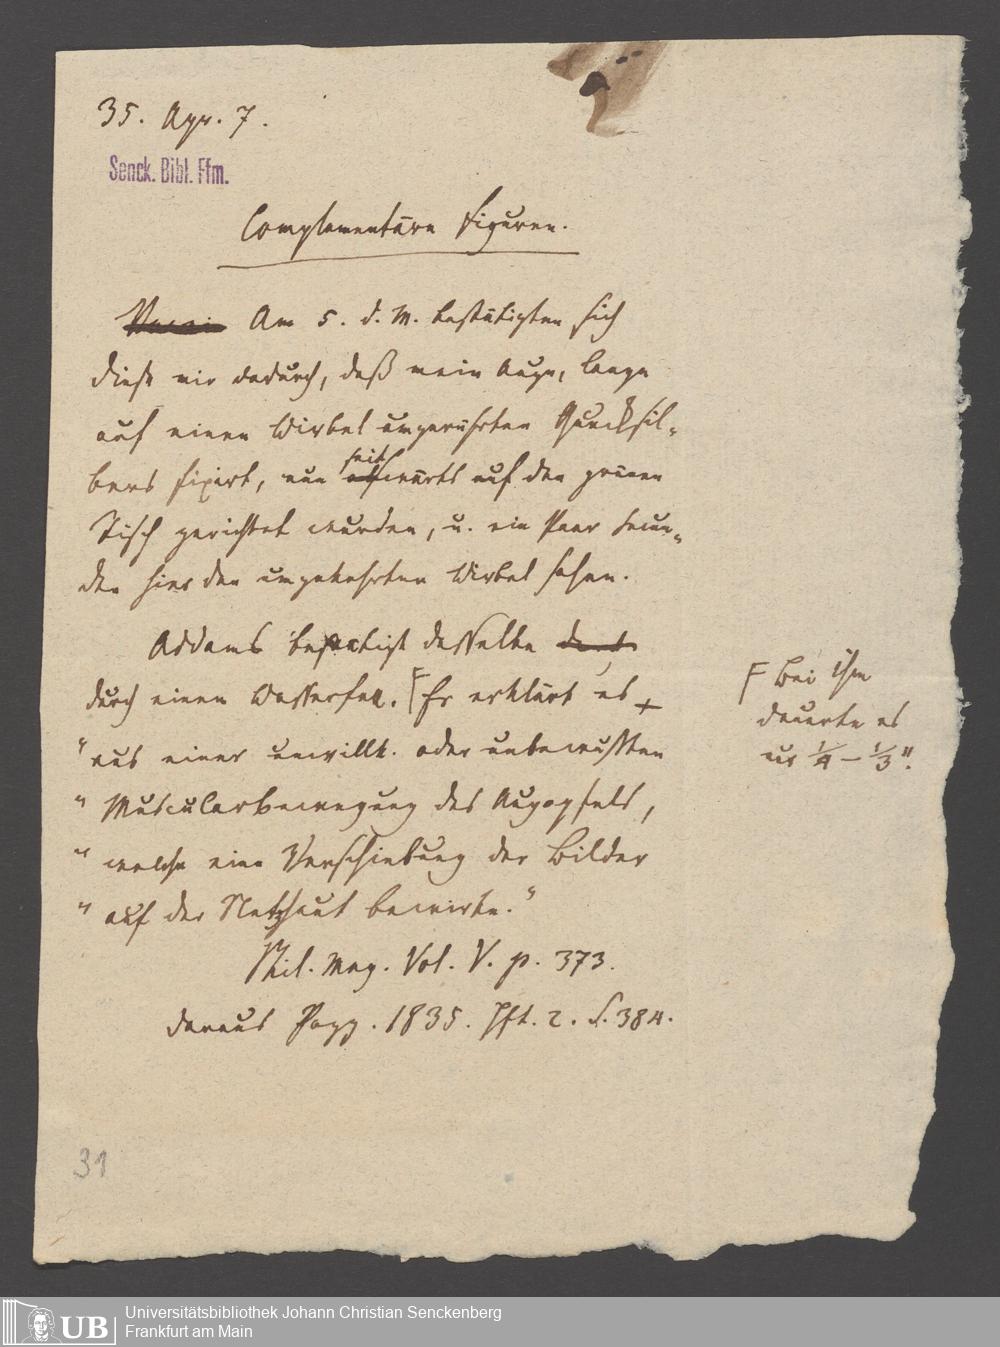 35. Apr. 7.
Senck. Bibl. Ffm.
Complementäre Figuren.
Am 5. d. M. bestätigten sich
diese mir dadurch, daß mein Auge, lange
auf einen Wirbel umgerührten Quecksil-
bers fixirt, nun seitwärts auf den grünen
Tisch gerichtet wurden, u. ein Paar Secun-
den hier den umgekehrten Wirbel sahen.
Addams bestätigt dasselbe
durch einen Wasserfall. Er erklärt es
"aus einer unwillk. oder unbewussten
" Muscularbewegung des Augapfels,
" welche eine Verschiebung der Bilder
" auf der Netzhaut bewirke."
Phil. Mag. Vol. V. p. 373.
daraus Pogg. 1835. Hft. 2. S. 384.
Bei ihm
dauerte es
nur 1/4 – 1/3".
31
UB
Universitätsbibliothek Johann Christian Senckenberg
Frankfurt am Main